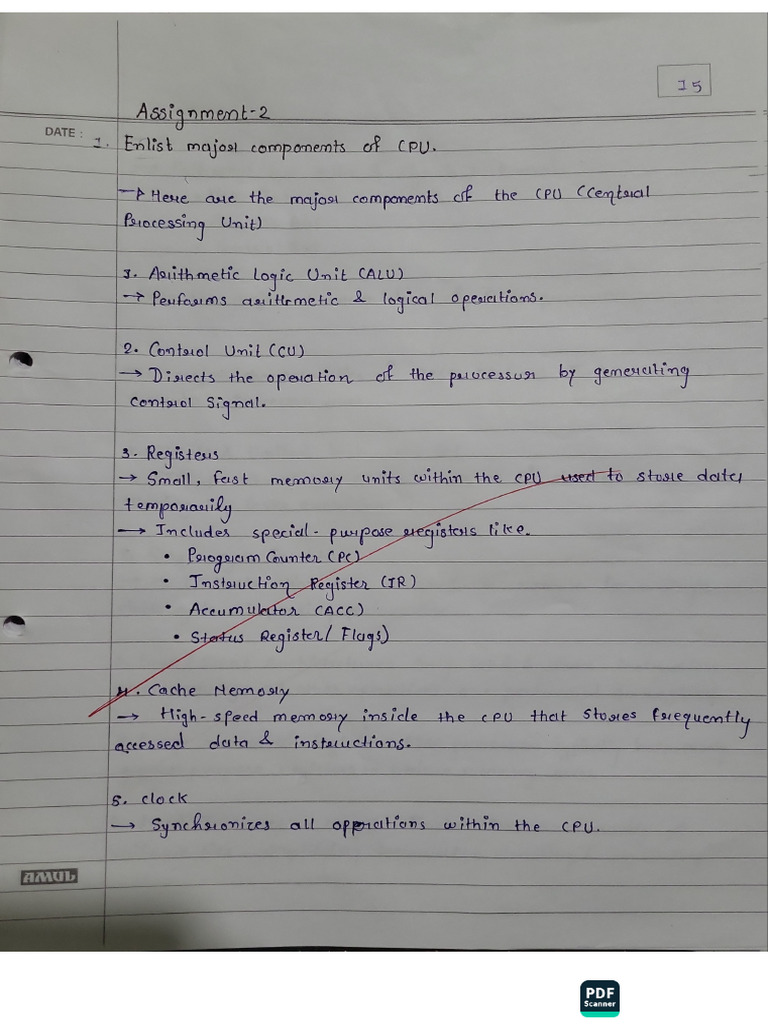 15
Assignment-2
DATE :
1. Enlist major components of CPU.
→ Here are the major components of the CPU (Central
Processing Unit)
1. Arithmetic Logic Unit (ALU)
→ Performs arithmetic & logical operations.
2. Control Unit (CU)
→ Directs the operation of the processor by generating
control signal.
3. Registers
→ Small, fast memory units within the CPU used to store data
temporarily
→ Includes special-purpose registers like.
• Program Counter (PC)
• Instruction Register (IR)
• Accumulator (ACC)
• Status Register/ Flags)
4. Cache Memory
→ High-speed memory inside the CPU that stores frequently
accessed data & instructions.
5. clock
→ Synchronizes all operations within the CPU.
AMUL
PDF
Scanner